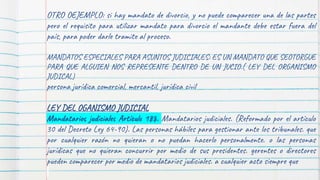 OTRO OEJEMPLO: si hay mandato de divorcio, y no puede comparecer una de las partes
pero el requisito para utilizar mandato para divorcio el mandante debe estar fuera del
país, para poder darle tramite al proceso.
MANDATOS ESPECIALES PARA ASUNTOS JUDICIALES: ES UN MANDATO QUE SEOTORGUE
PARA QUE ALGUIEN NOS REPRESENTE DENTRO DE UN JUCIO.( LEY DEL ORGANISMO
JUDICAL)
persona juridica comercial, mercantil, juridica civil
LEY DEL OGANISMO JUDICIAL
Mandatarios judiciales Artículo 188. Mandatarios judiciales. (Reformado por el artículo
30 del Decreto Ley 64-90). Las personas hábiles para gestionar ante los tribunales, que
por cualquier razón no quieran o no puedan hacerlo personalmente, o las personas
jurídicas que no quieran concurrir por medio de sus presidentes, gerentes o directores
pueden comparecer por medio de mandatarios judiciales, a cualquier acto siempre que